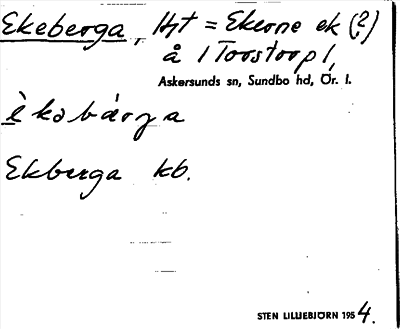 Ekeberga, Hgt = Ekerne ek (?)
å / Torstorp /,
Askersunds sn, Sundbo hd, Ör. l.
èkabärga
Ekberga kb.
STEN LILLIEBJÖRN 1954.